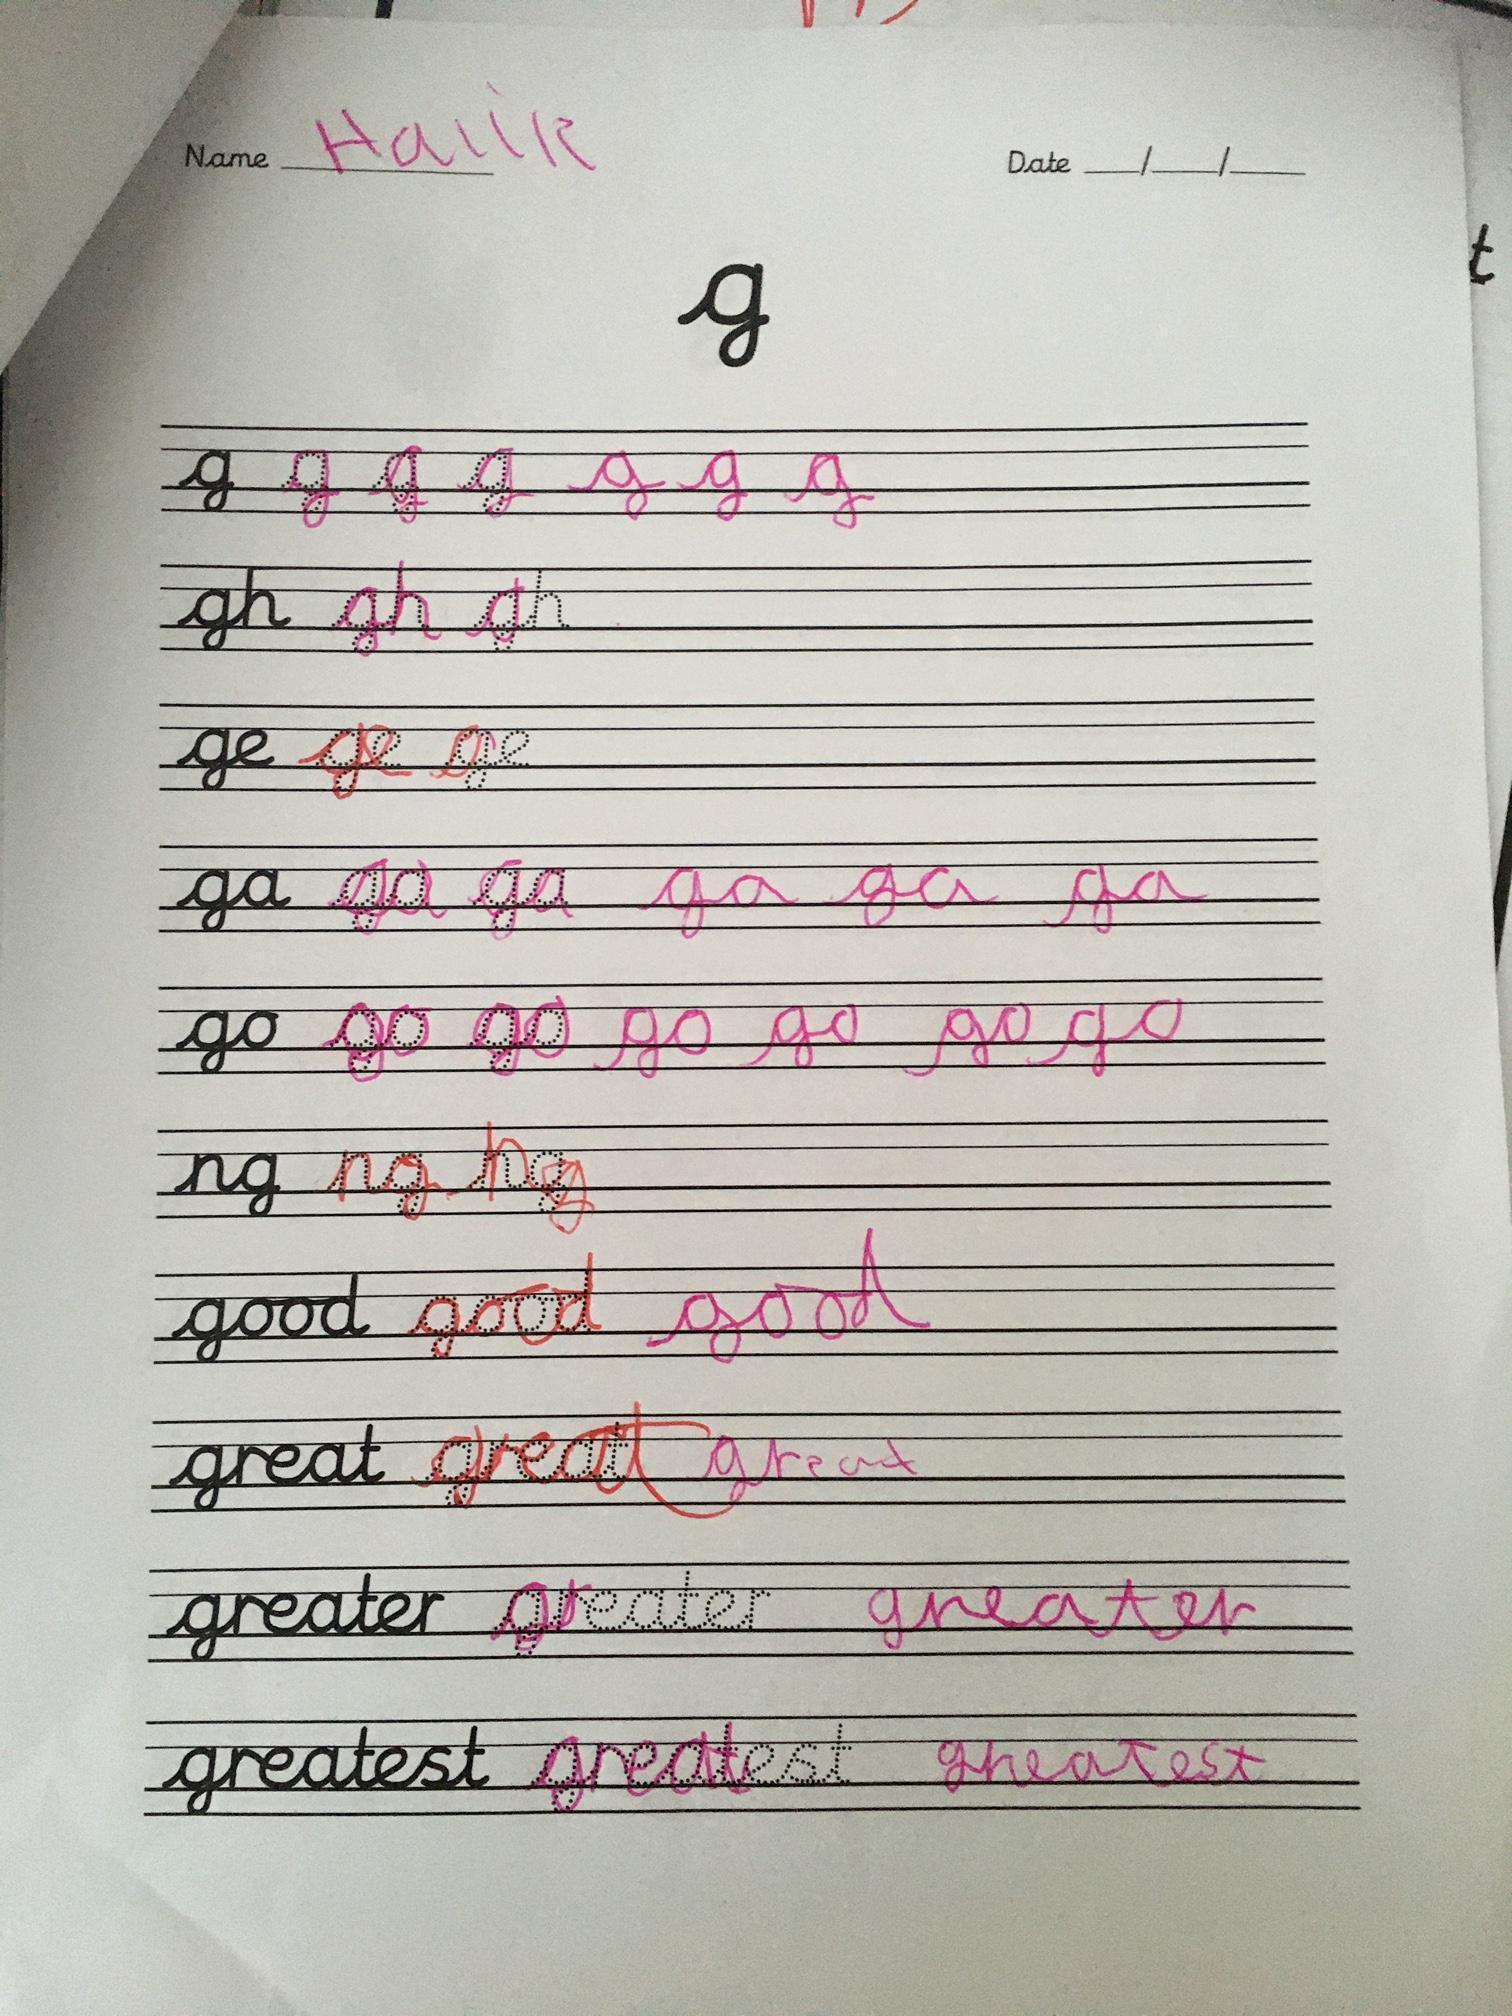 Name Halik Date __/__/__
t
g
g g g g g g g
gh gh gh
ge ge ge
ga ga ga ga ga ga
go go go go go go go
ng ng hg
good good good
great great great
greater greater greater
greatest greatest greatest